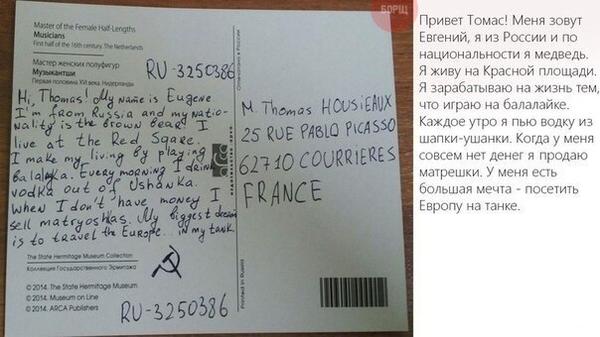 Master of the Female Half-Lengths
Musicians
First half of the 16th century. The Netherlands
Мастер женских полуфигур
Музыкантши
Первая половина XVI века. Нидерланды
RU-3250386
Hi, Thomas! My name is Eugene
I'm from Russia and my natio-
nality is the brown bear! I
live at the Red Sqare.
I make my living by playing
balalayka. Every morning I drink
vodka out of Ushanka.
When I don't have money I
sell matryoshkas. My biggest dream
is to travel the Europe... in my tank.
The State Hermitage Museum Collection
Коллекция Государственного Эрмитажа
© 2014. The State Hermitage Museum
© 2014. Museum on Line
© 2014. ARCA Publishers
RU-3250386
Отпечатано в России
Printed in Russia
arca
БОРЩ
M. Thomas HOUSIEAUX
25 RUE PABLO PICASSO
62710 COURRIERES
FRANCE
Привет Томас! Меня зовут
Евгений, я из России и по
национальности я медведь.
Я живу на Красной площади.
Я зарабатываю на жизнь тем,
что играю на балалайке.
Каждое утро я пью водку из
шапки-ушанки. Когда у меня
совсем нет денег я продаю
матрешки. У меня есть
большая мечта - посетить
Европу на танке.